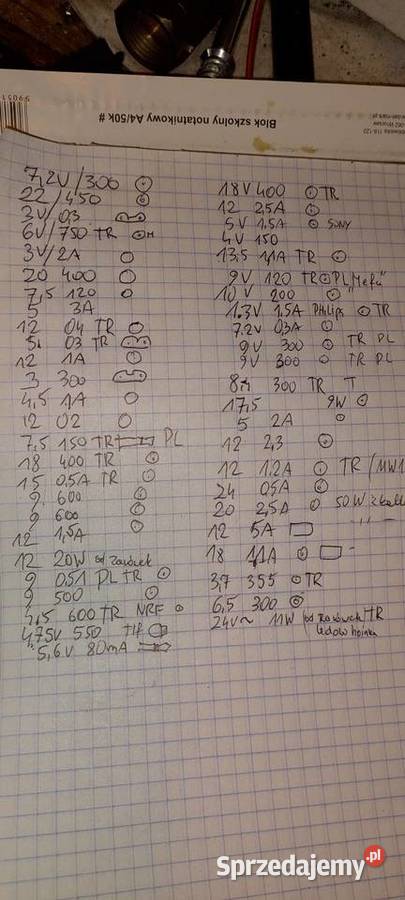 Blok szkolny notatnikowy A4/50k #
7,2V/300
22/450
3V/0,3
6V/750 TR
3V/2A
20 400
7,5 120
5 3A
12 04 TR
5 03 TR
12 1A
3 300
4,5 1A
12 02
7,5 150 TR PL
18 400 TR
15 0,5A TR
9 600
9 600
12 1,5A
12 20W od żarówek
9 051 PL TR
9 500
4,5 600 TR NRF
4,75V 550 Tlf
5,6V 80mA
18V 400 TR
12 2,5A
5V 1,5A SONY
4V 150
13,5 1,1A TR
9V 120 TR PL "Mefa"
10V 200
1,3V 1,5A Philips TR
7,2V 0,3A
9V 300 TR PL
9V 300 TR PL
300 TR T
17,5 9W
5 2A
12 2,3
12 1,2A TR
24 0,5A
20 2,5A 50W
12 5A
18 1,1A
3,7 355 TR
6,5 300
24V~ 11W od żarówek TR
Sprzedajemy.pl